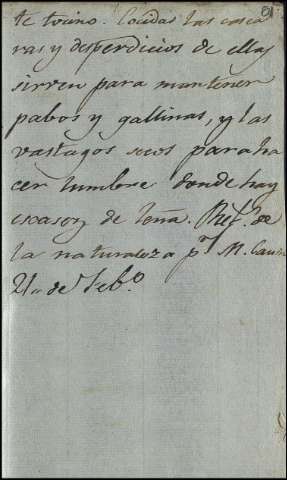 te tocino. Cocidas las casca
ras y desperdicios de ellas
sirven para mantener
pabos y gallinas, y las
vastagos secos para ha
cer lumbre donde hay
escasez de leña. de
la naturaleza pr. M.
21,, de Feb.o